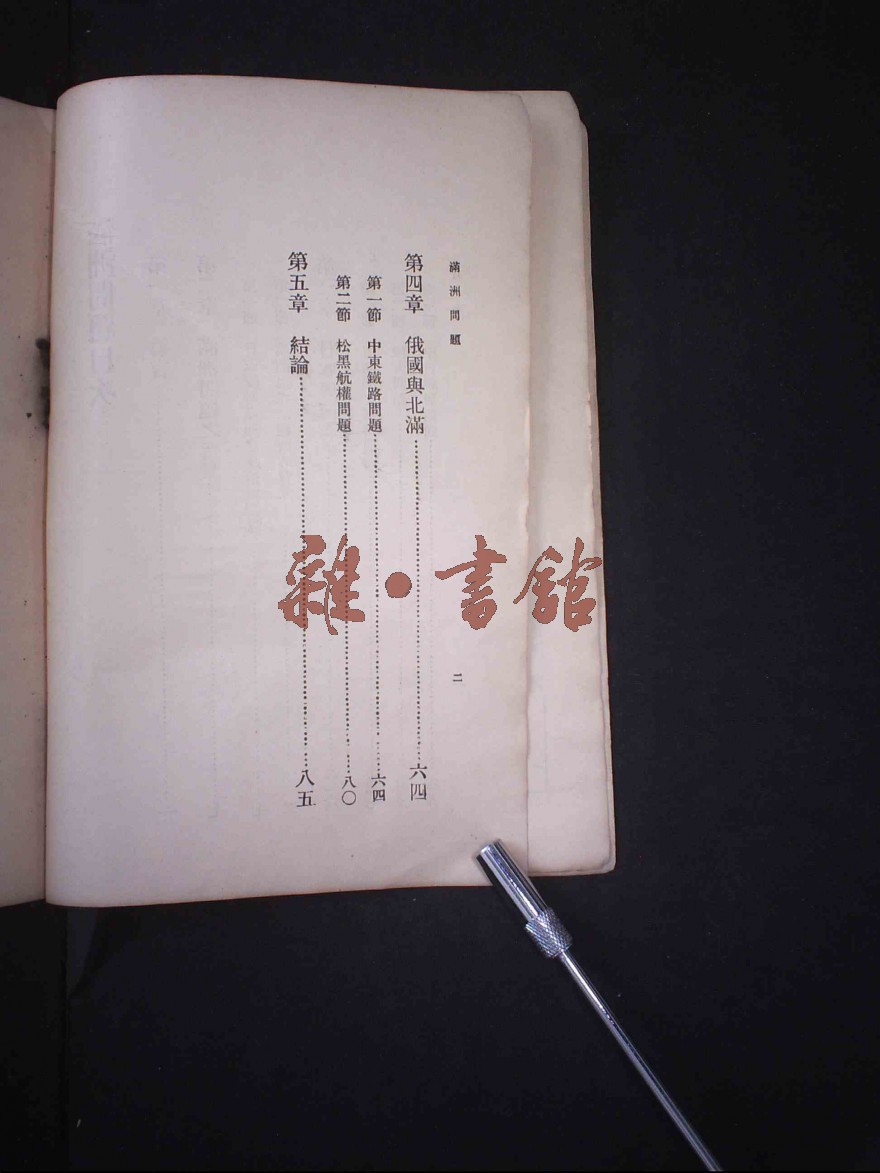 滿洲問題
二
第四章　俄國與北滿……六四
第一節　中東鐵路問題……六四
第二節　松黑航權問題……八〇
第五章　結論……八五
雜·書館